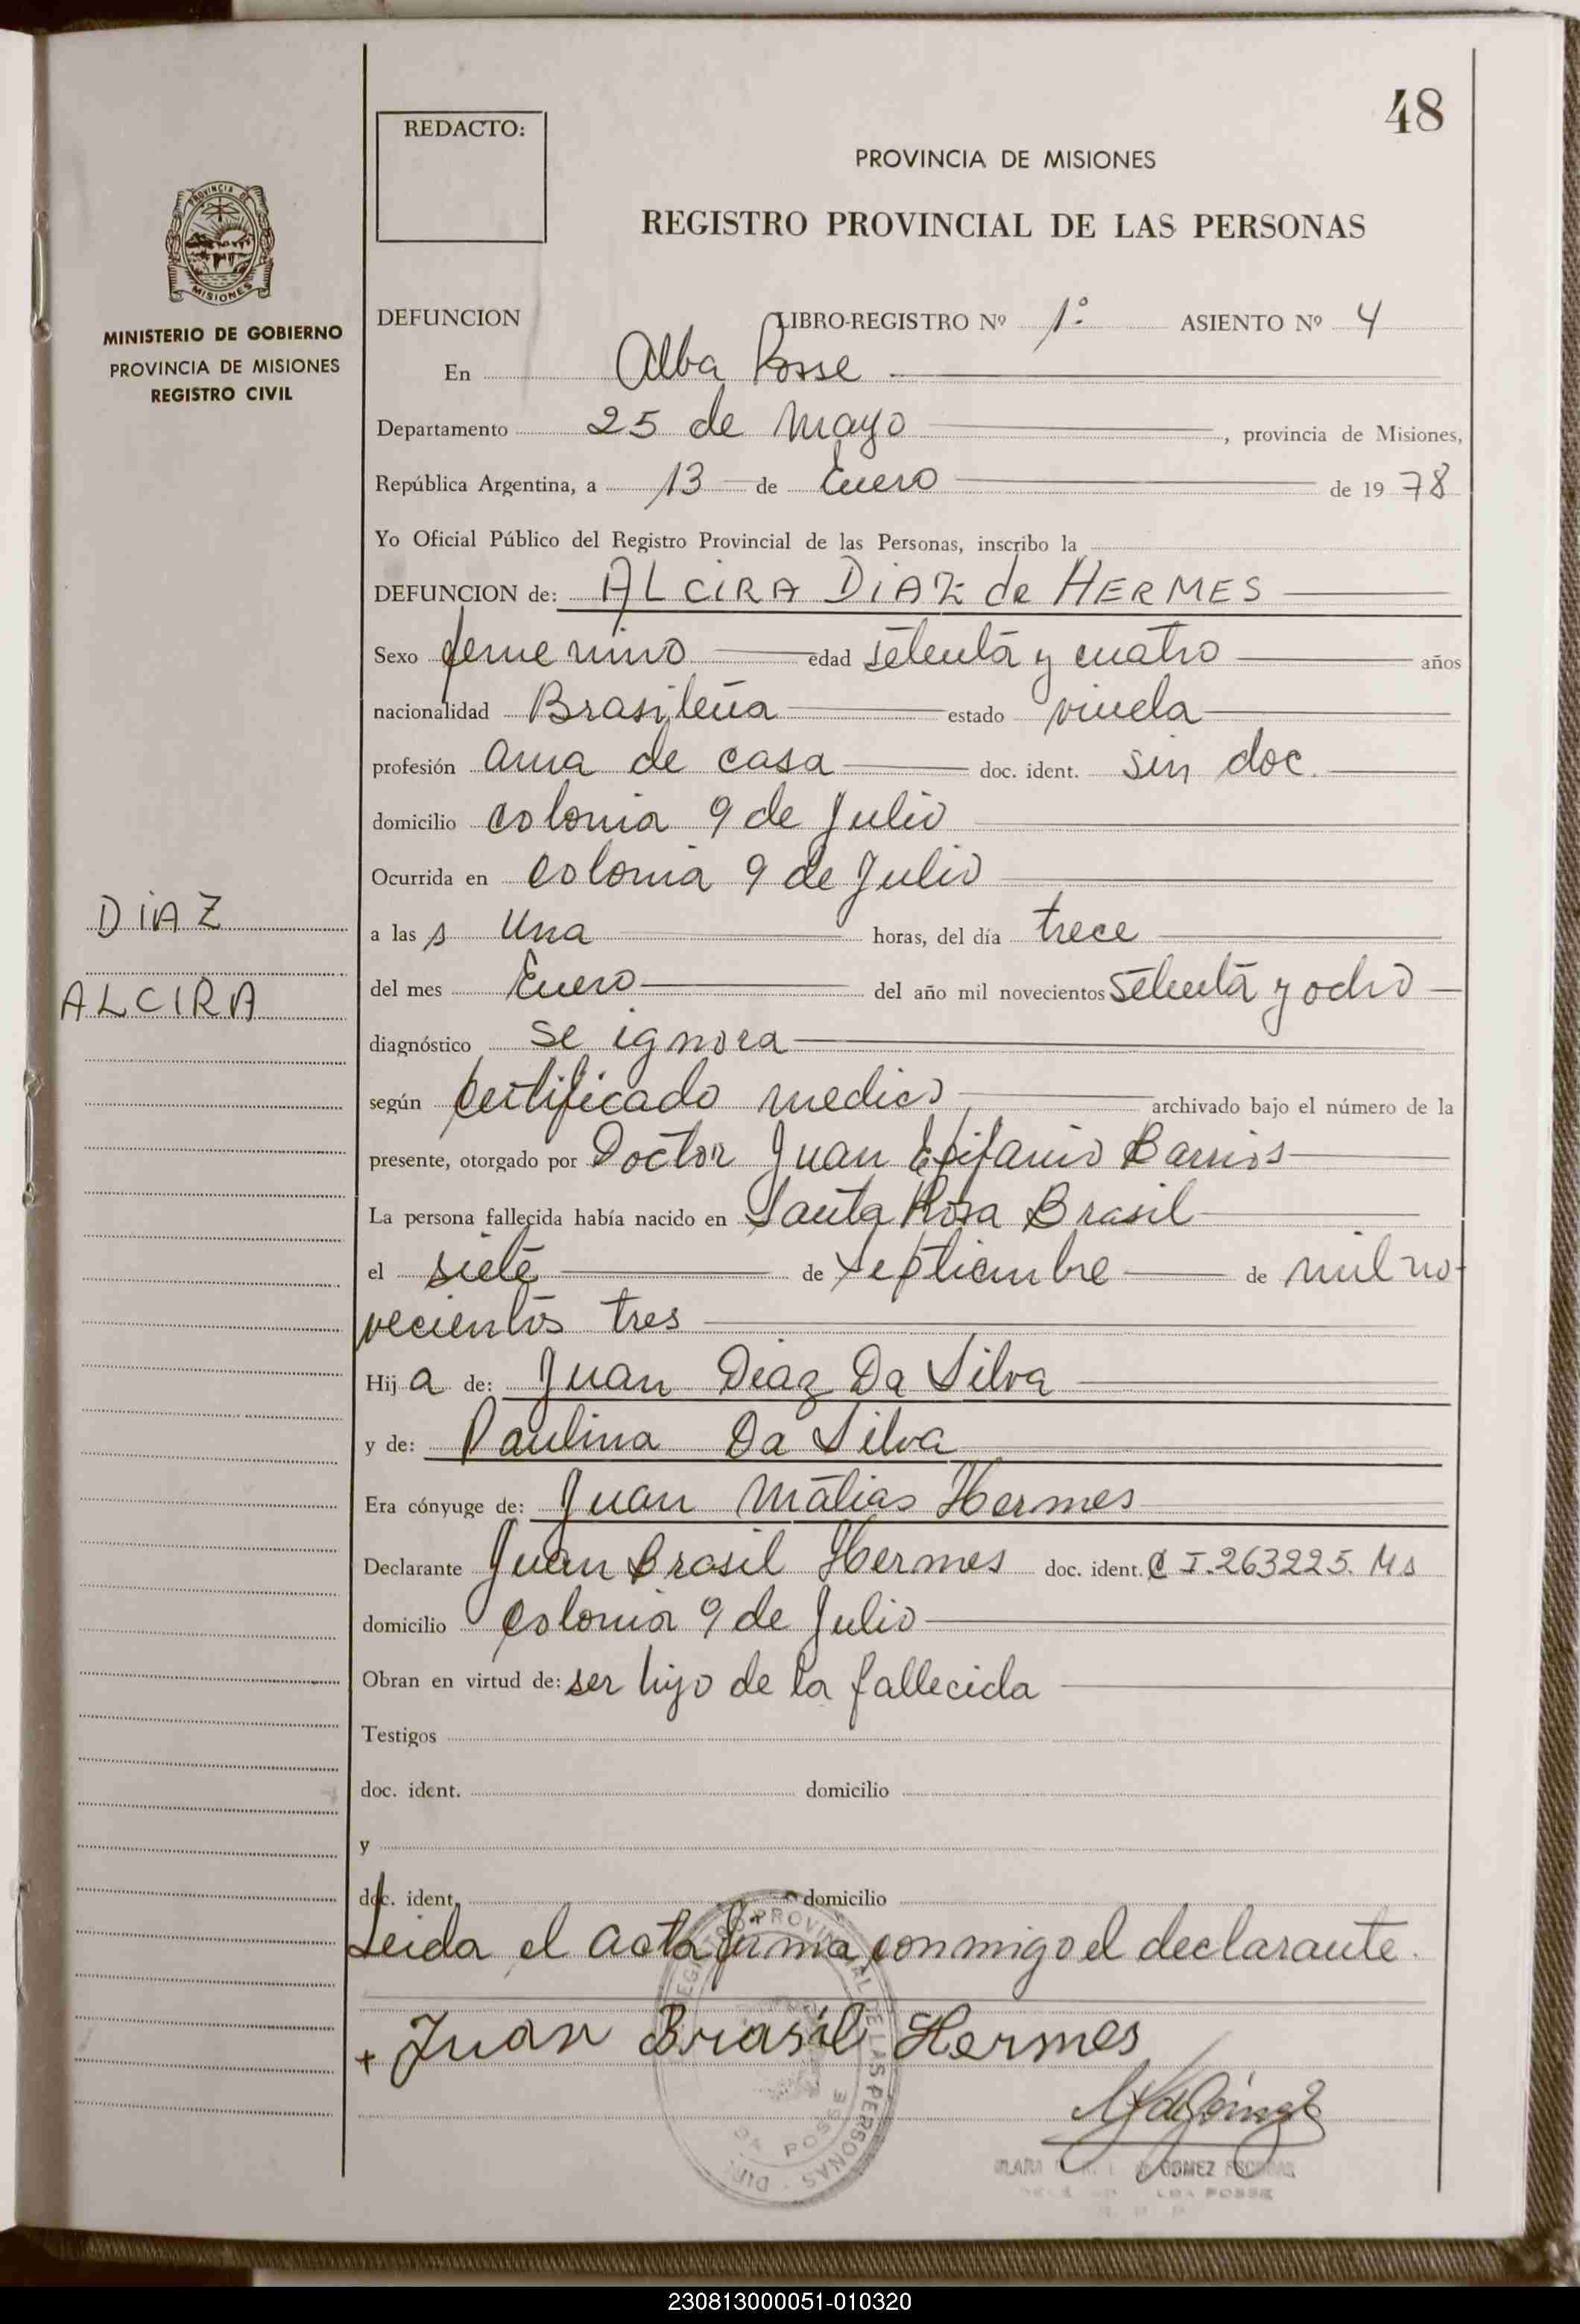 48
REDACTO:
PROVINCIA DE MISIONES
REGISTRO PROVINCIAL DE LAS PERSONAS
PROVINCIA DE
MISIONES
MINISTERIO DE GOBIERNO
PROVINCIA DE MISIONES
REGISTRO CIVIL
DEFUNCION LIBRO-REGISTRO Nº 1º ASIENTO Nº 4
En Alba Posse
Departamento 25 de Mayo, provincia de Misiones,
República Argentina, a 13 de Enero de 1978
Yo Oficial Público del Registro Provincial de las Personas, inscribo la
DEFUNCION de: ALCIRA DIAZ de HERMES
Sexo femenino edad setenta y cuatro años
nacionalidad Brasileña estado viuda
profesión ama de casa doc. ident. sin doc.
domicilio colonia 9 de Julio
Ocurrida en colonia 9 de Julio
DIAZ
a las s una horas, del día trece
ALCIRA
del mes Enero del año mil novecientos setenta y ocho
diagnóstico se ignora
según certificado medico archivado bajo el número de la
presente, otorgado por Doctor Juan Epifanio Barrios
La persona fallecida había nacido en Santa Rosa Brasil
el siete de septiembre de mil no-
vecientos tres
Hija de: Juan Diaz Da Silva
y de: Paulina Da Silva
Era cónyuge de: Juan Matias Hermes
Declarante Juan Brasil Hermes doc. ident. C I. 263225. Ms
domicilio colonia 9 de Julio
Obran en virtud de: ser hijo de la fallecida
Testigos
doc. ident. domicilio
y
doc. ident. domicilio
Leida el acta firma conmigo el declarante.
+ Juan Brasil Hermes
PROVINCIAL DE LAS PERSONAS
POSSE
GOMEZ
POSSE
230813000051-010320